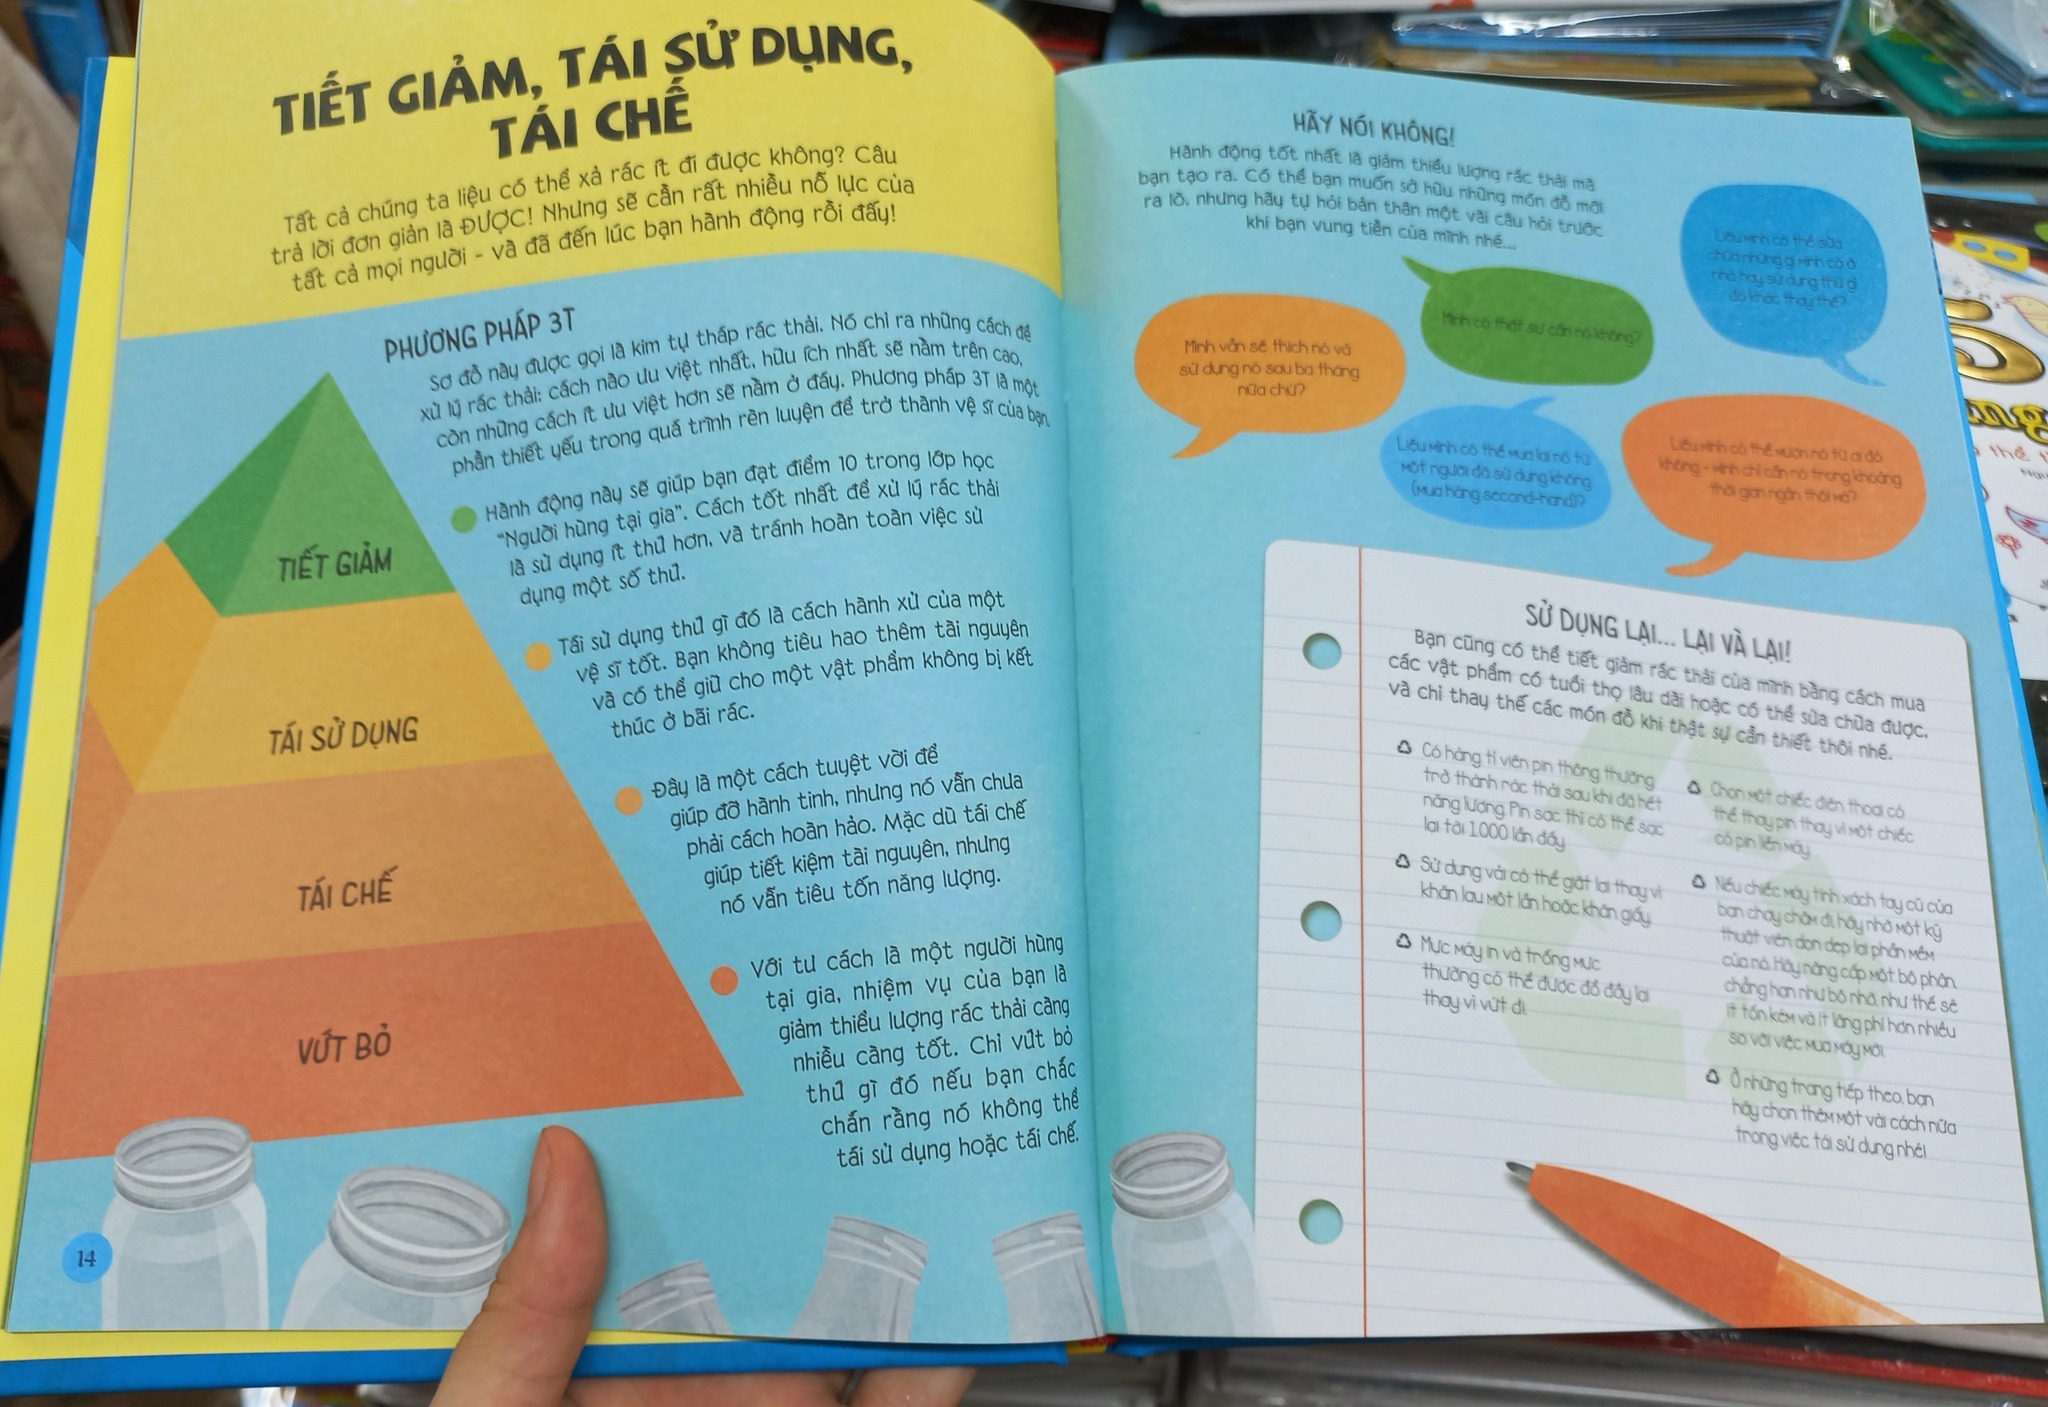 TIẾT GIẢM, TÁI SỬ DỤNG,
TÁI CHẾ
Tất cả chúng ta liệu có thể xả rác ít đi được không? Câu
trả lời đơn giản là ĐƯỢC! Nhưng sẽ cần rất nhiều nỗ lực của
tất cả mọi người - và đã đến lúc bạn hành động rồi đấy!
PHƯƠNG PHÁP 3T
Sơ đồ này được gọi là kim tự tháp rác thải. Nó chỉ ra những cách để
xử lý rác thải: cách nào ưu việt nhất, hữu ích nhất sẽ nằm trên cao,
còn những cách ít ưu việt hơn sẽ nằm ở đấy. Phương pháp 3T là một
phần thiết yếu trong quá trình rèn luyện để trở thành vệ sĩ của bạn.
Hành động này sẽ giúp bạn đạt điểm 10 trong lớp học
"Người hùng tại gia". Cách tốt nhất để xử lý rác thải
là sử dụng ít thứ hơn, và tránh hoàn toàn việc sử
dụng một số thứ.
Tái sử dụng thứ gì đó là cách hành xử của một
vệ sĩ tốt. Bạn không tiêu hao thêm tài nguyên
và có thể giữ cho một vật phẩm không bị kết
thúc ở bãi rác.
Đây là một cách tuyệt vời để
giúp đỡ hành tinh, nhưng nó vẫn chưa
phải cách hoàn hảo. Mặc dù tái chế
giúp tiết kiệm tài nguyên, nhưng
nó vẫn tiêu tốn năng lượng.
Với tư cách là một người hùng
tại gia, nhiệm vụ của bạn là
giảm thiểu lượng rác thải càng
nhiều càng tốt. Chỉ vứt bỏ
thứ gì đó nếu bạn chắc
chắn rằng nó không thể
tái sử dụng hoặc tái chế.
TIẾT GIẢM
TÁI SỬ DỤNG
TÁI CHẾ
VỨT BỎ
14
HÃY NÓI KHÔNG!
Hành động tốt nhất là giảm thiểu lượng rác thải mà
bạn tạo ra. Có thể bạn muốn sở hữu những món đồ mới
ra lò, nhưng hãy tự hỏi bản thân một vài câu hỏi trước
khi bạn vung tiền của mình nhé...
Liệu mình có thể sửa
chữa những gì mình có ở
nhà hay sử dụng thứ gì
đó khác thay thế?
Mình có thật sự cần nó không?
Mình vẫn sẽ thích nó và
sử dụng nó sau ba tháng
nữa chứ?
Liệu mình có thể mua lại nó từ
một người đã sử dụng không
(mua hàng second-hand)?
Liệu mình có thể mượn nó từ ai đó
không - mình chỉ cần nó trong khoảng
thời gian ngắn thôi mà?
SỬ DỤNG LẠI... LẠI VÀ LẠI!
Bạn cũng có thể tiết giảm rác thải của mình bằng cách mua
các vật phẩm có tuổi thọ lâu dài hoặc có thể sửa chữa được,
và chỉ thay thế các món đồ khi thật sự cần thiết thôi nhé.
Có hàng tỉ viên pin thông thường
trở thành rác thải sau khi đã hết
năng lượng. Pin sạc thì có thể sạc
lại tới 1.000 lần đấy.
Sử dụng vải có thể giặt lại thay vì
khăn lau một lần hoặc khăn giấy.
Mực máy in và trống mực
thường có thể được đổ đầy lại
thay vì vứt đi.
Chọn một chiếc điện thoại có
thể thay pin thay vì một chiếc
có pin liền máy.
Nếu chiếc máy tính xách tay cũ của
bạn chạy chậm đi, hãy nhờ một kỹ
thuật viên dọn dẹp lại phần mềm
của nó. Hãy nâng cấp một bộ phận,
chẳng hạn như bộ nhớ, như thế sẽ
ít tốn kém và ít lãng phí hơn nhiều
so với việc mua máy mới.
Ở những trang tiếp theo, bạn
hãy chọn thêm một vài cách nữa
trong việc tái sử dụng nhé!